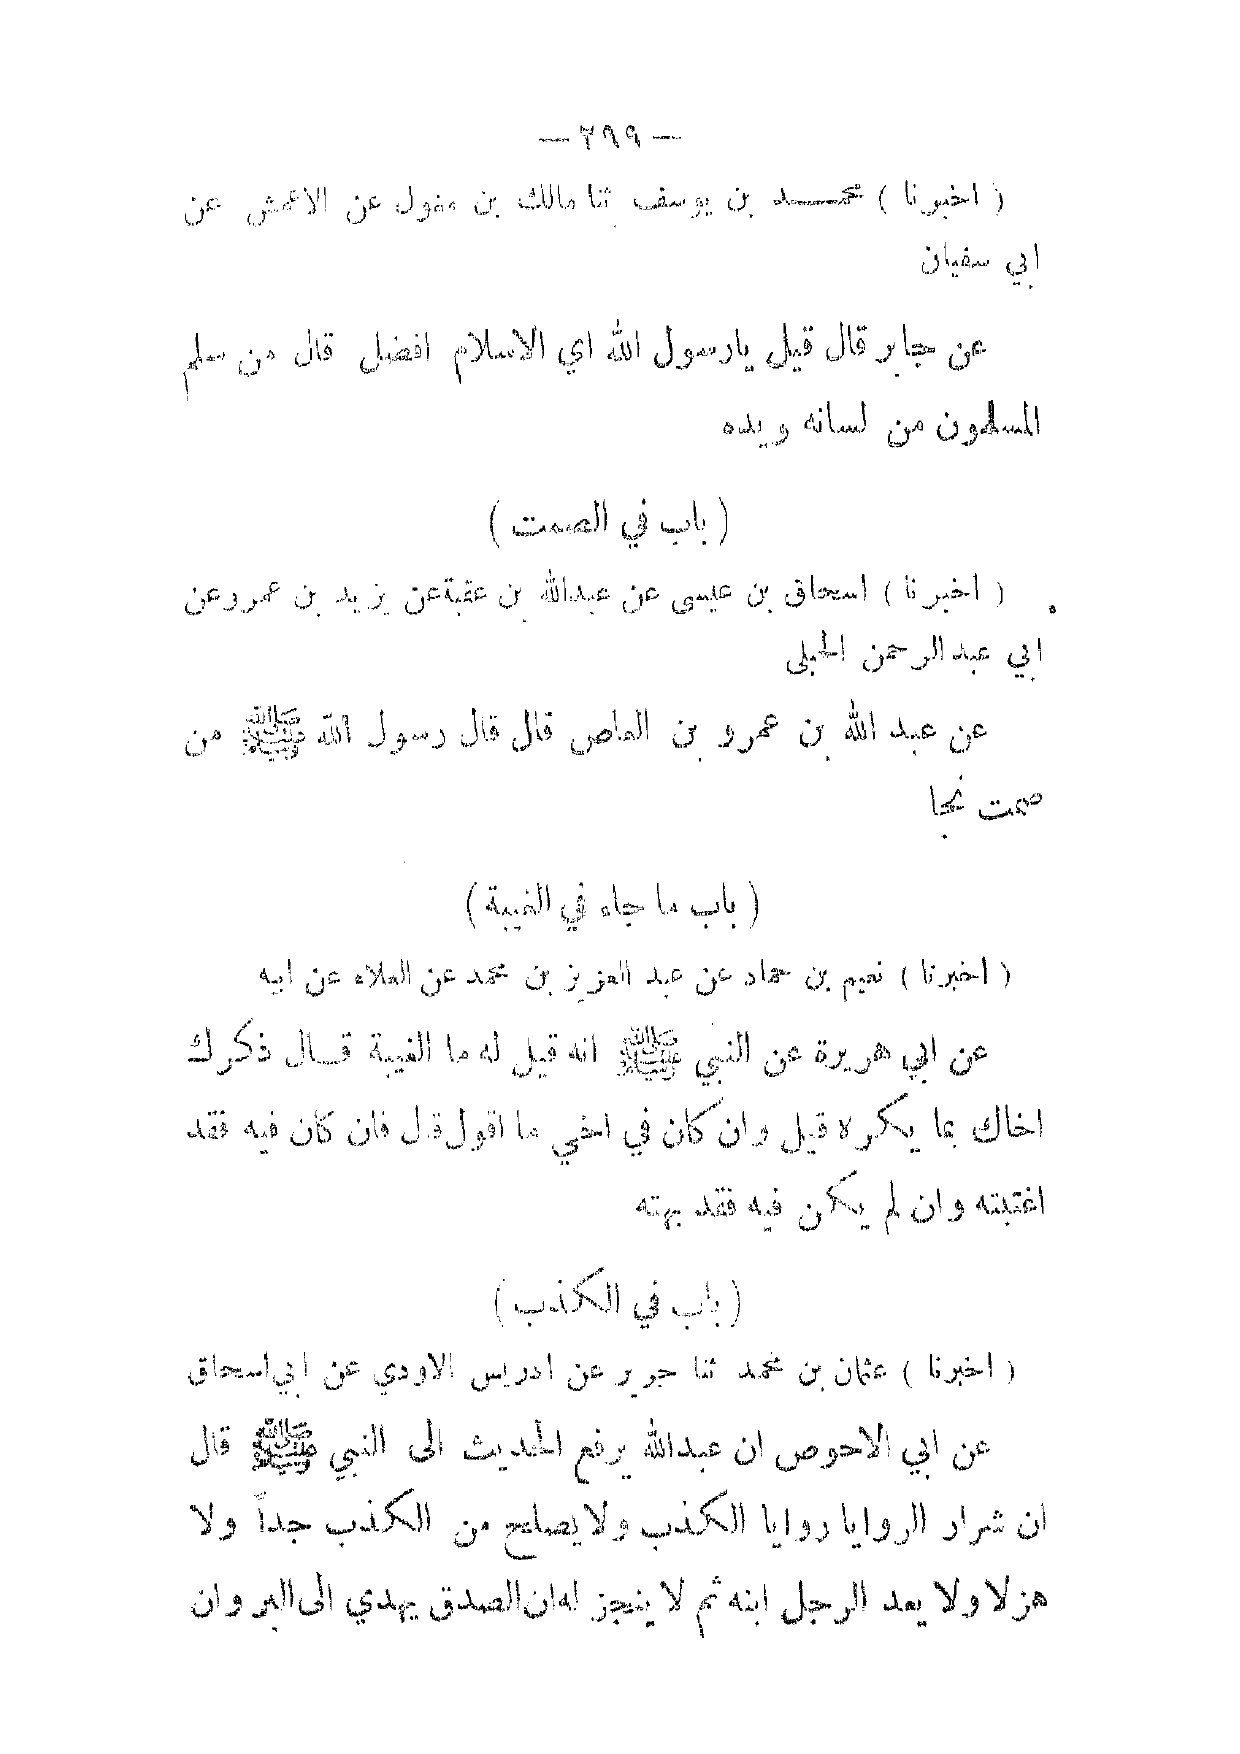 — ٢٩٩ —
( اخبرنا ) محمـــد بن يوسف ثنا مالك بن مغول عن الاعمش عن
ابي سفيان
عن جابر قال قيل يارسول الله اي الاسلام افضل قال من سلم
المسلمون من لسانه ويده
( باب في الصمت )
( اخبرنا ) اسحاق بن عيسى عن عبدالله بن عقبةعن يزيد بن عمروعن
ابي عبدالرحمن الحبلى
عن عبد الله بن عمرو بن العاص قال قال رسول الله ﷺ من
صمت نجا
( باب ما جاء في الغيبة )
( اخبرنا ) نعيم بن حماد عن عبد العزيز بن محمد عن العلاء عن ابيه
عن ابي هريرة عن النبي ﷺ انه قيل له ما الغيبة قــال ذكرك
اخاك بما يكره قيل وان كان في اخي ما اقول قال فان كان فيه فقد
اغتبته وان لم يكن فيه فقد بهته
( باب في الكذب )
( اخبرنا ) عثمان بن محمد ثنا جرير عن ادريس الاودي عن ابي اسحاق
عن ابي الاحوص ان عبدالله يرفع الحديث الى النبي ﷺ قال
ان شرار الروايا روايا الكذب ولايصلح من الكذب جداً ولا
هزلا ولا يعد الرجل ابنه ثم لا ينجز له ان الصدق يهدي الى البر وان